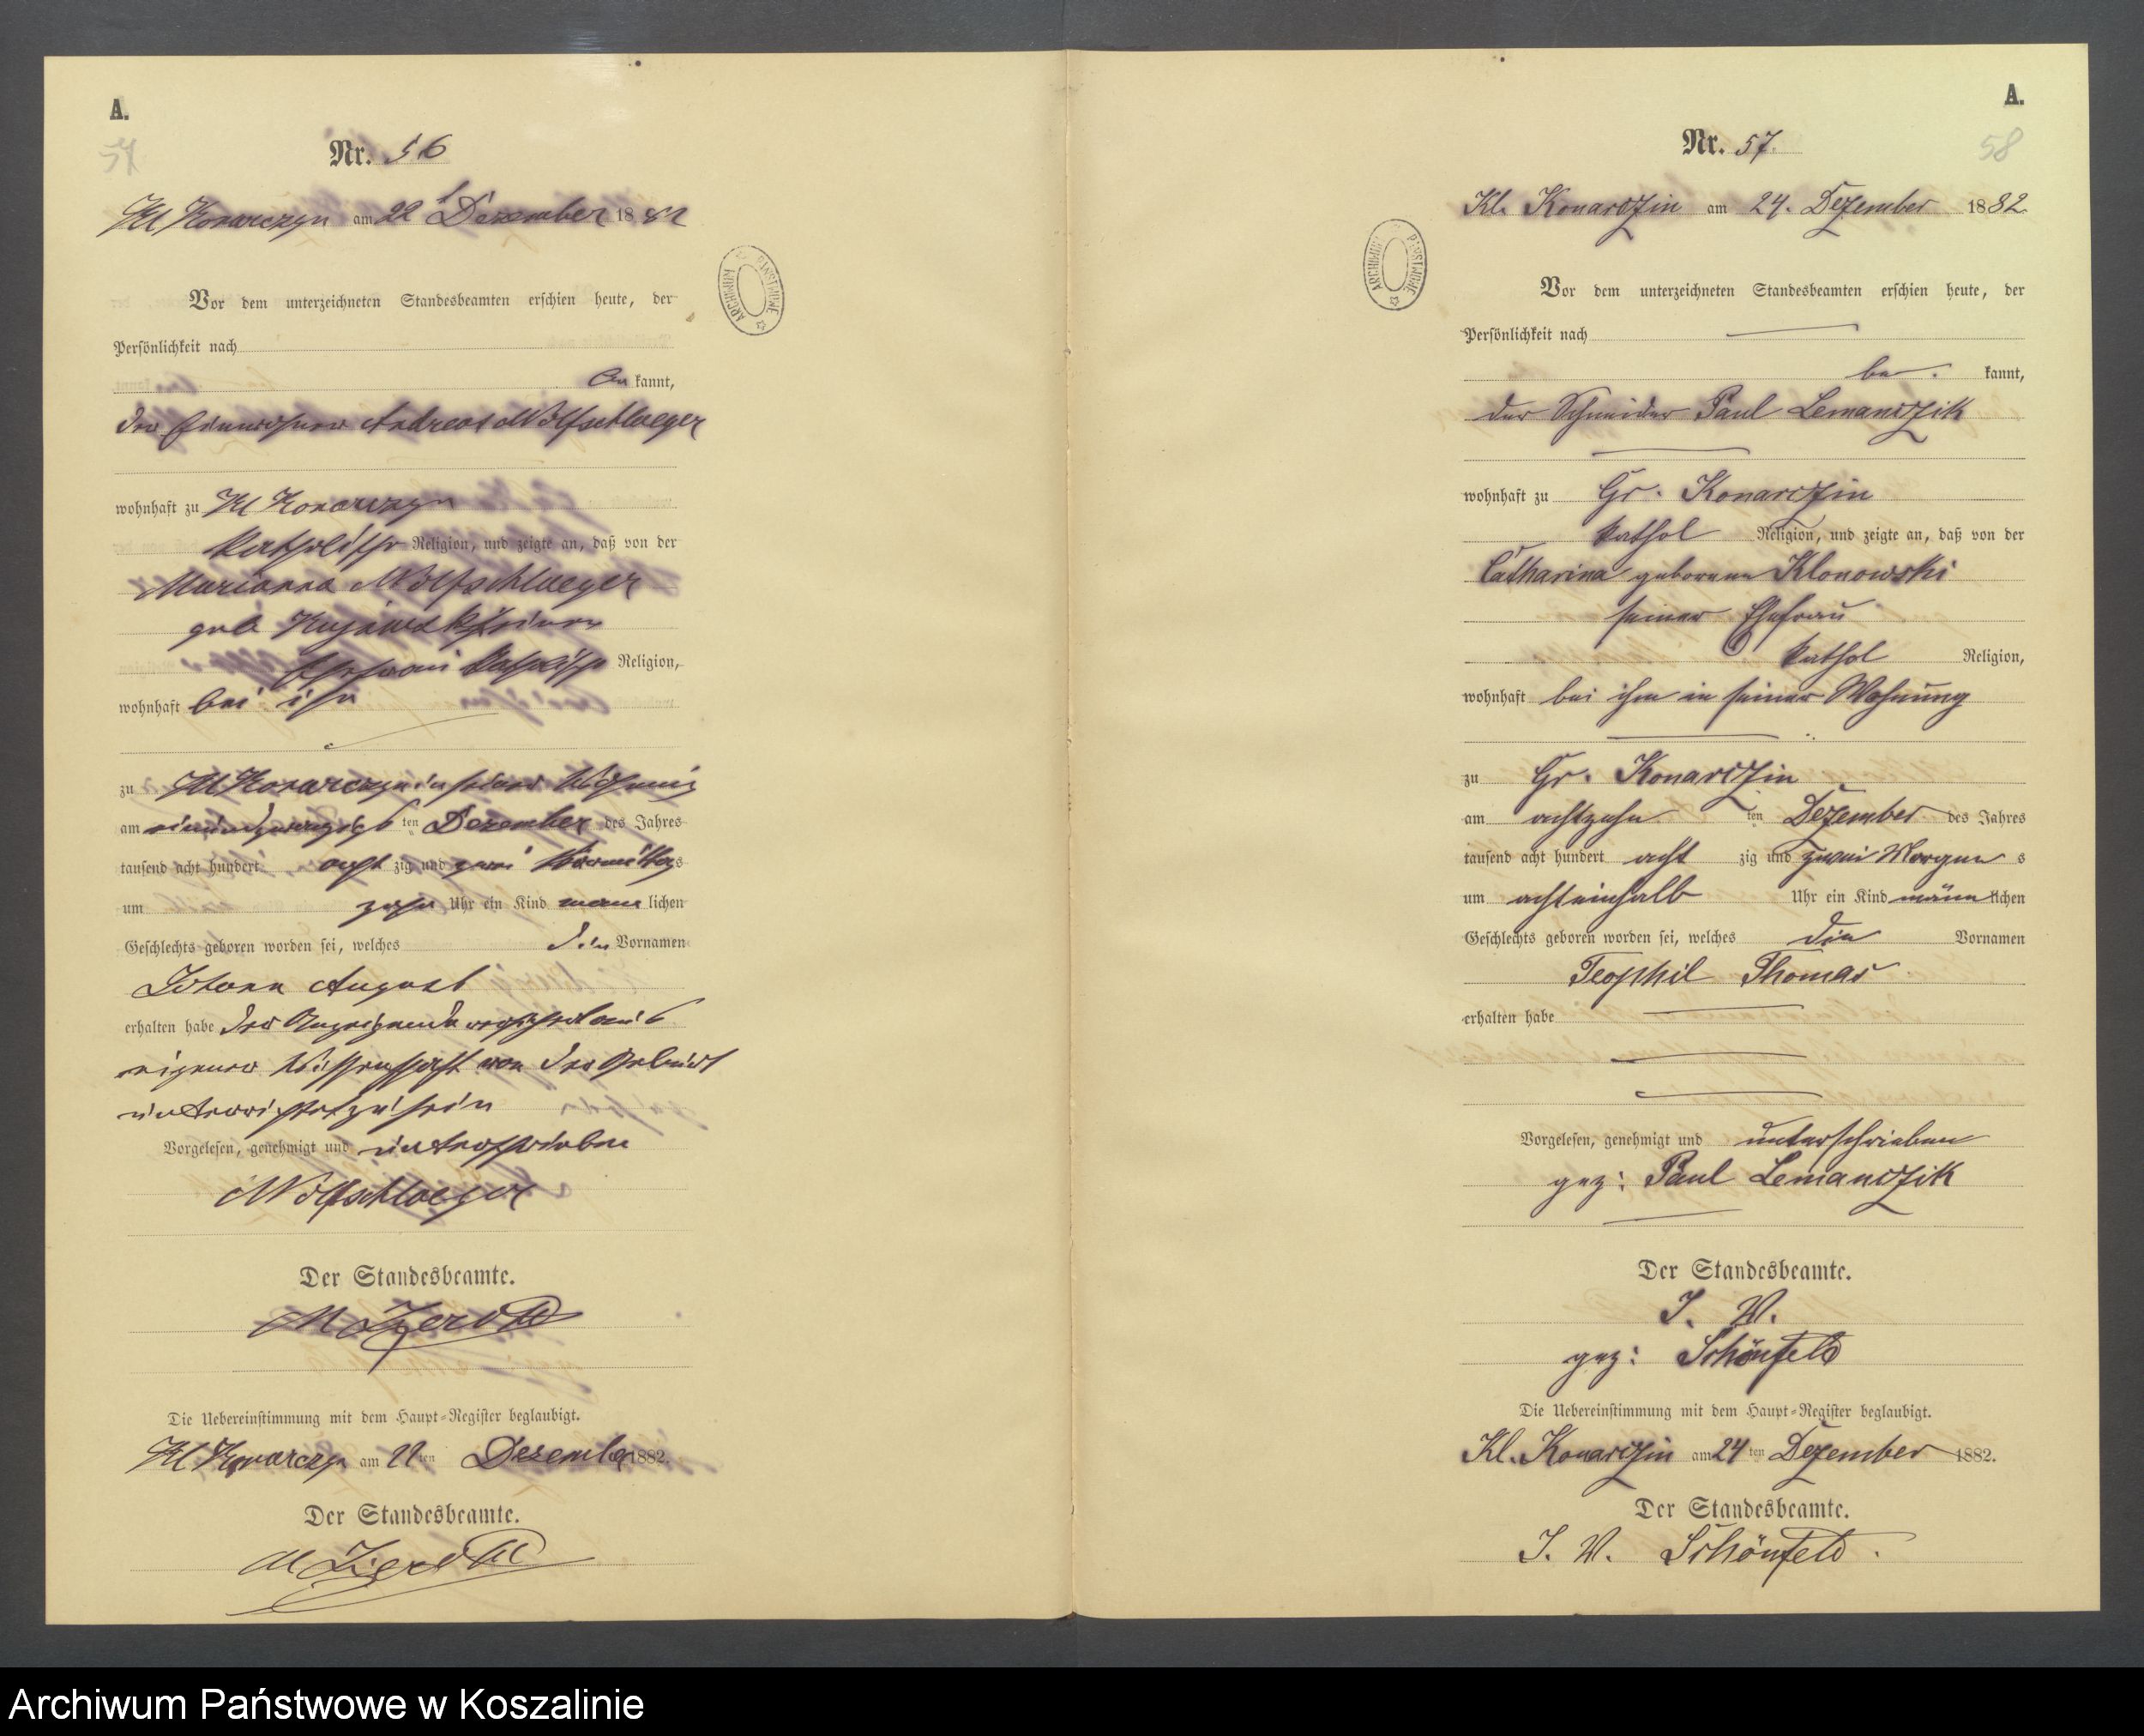 A.
57
Nr. 56
Kl Konarczyn am 22 Dezember 1882
Vor dem unterzeichneten Standesbeamten erschien heute, der
Persönlichkeit nach
be kannt,
der Einwohner Andreas Wolfschlaeger
wohnhaft zu Kl Konarczyn
katholischer Religion, und zeigte an, daß von der
Marianna Wolfschlaeger
geb seiner
Ehefrau katholischer Religion,
wohnhaft bei ihm
zu Kl Konarczyn in seiner Wohnung
am einundzwanzigs ten Dezember des Jahres
tausend acht hundert acht zig und zwei Vormittags
um zehn Uhr ein Kind männ lichen
Geschlechts geboren worden sei, welches die Vornamen
Johann August
erhalten habe der Anzeigende aus
eigener Wissenschaft von der Geburt
unterrichtet zu sein
Vorgelesen, genehmigt und unterschrieben
Wolfschlaeger
Der Standesbeamte.
Die Uebereinstimmung mit dem Haupt-Register beglaubigt.
Kl Konarczyn am 22 ten Dezember 1882.
Der Standesbeamte.
A.
58
Nr. 57.
Kl. Konarczin am 24. Dezember 1882.
Vor dem unterzeichneten Standesbeamten erschien heute, der
Persönlichkeit nach
be kannt,
der Schneider Paul Lemanczik
wohnhaft zu Gr. Konarczin
kathol Religion, und zeigte an, daß von der
Catharina geborenen Klonowski
seiner Ehefrau
kathol Religion,
wohnhaft bei ihm in seiner Wohnung
zu Gr. Konarczin
am achtzehn ten Dezember des Jahres
tausend acht hundert acht zig und zwei Morgen s
um achteinhalb Uhr ein Kind männ lichen
Geschlechts geboren worden sei, welches die Vornamen
Teophil Thomas
erhalten habe
Vorgelesen, genehmigt und unterschrieben
gez: Paul Lemanczik
Der Standesbeamte.
I. V.
gez: Schönfeld
Die Uebereinstimmung mit dem Haupt-Register beglaubigt.
Kl. Konarczin am 24 ten Dezember 1882.
Der Standesbeamte.
I. V. Schönfeld.
ARCHIWUM PAŃSTWOWE
ARCHIWUM PAŃSTWOWE
Archiwum Państwowe w Koszalinie